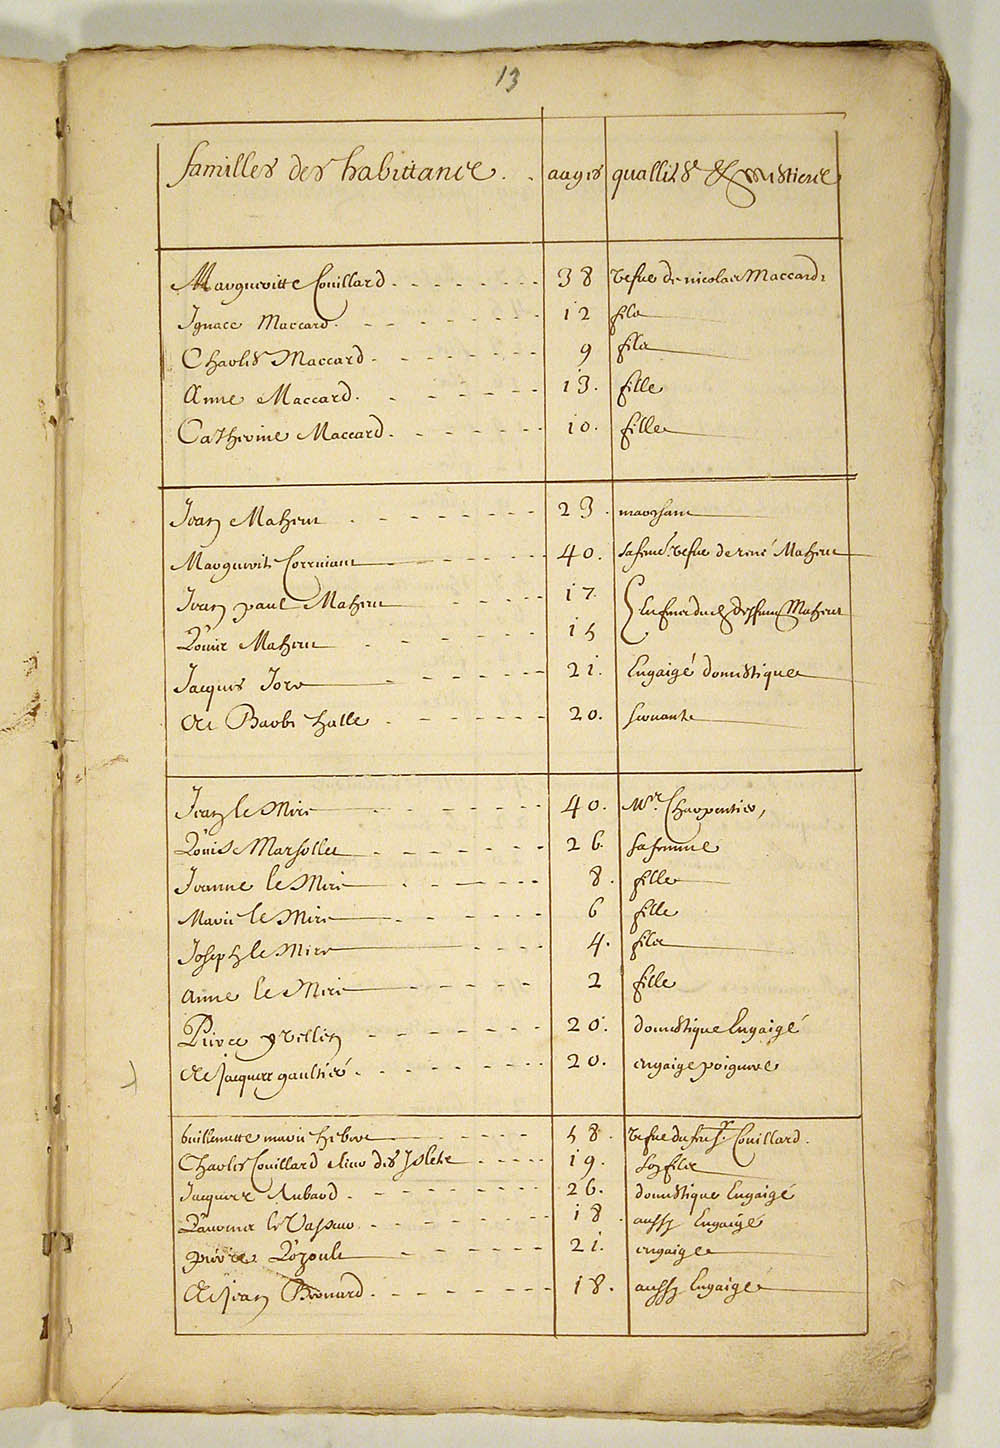 13
familles des habittans . . aages quallités & mestiers
Margueritte Couillard 38 vefue de nicolas Maccard
Ignace Maccard 12 filz
Charles Maccard 9 filz
Anne Maccard 13. fille
Catherine Maccard 10. fille
Jean Maheu 23. marchant
Marguerite Corriuaut 40. sa feme vefue de rené Maheu
Jean paul Maheu 17
Louis Maheu 15 Enfans dud deffunt Maheut
Jacques Jore 21. Engaigé domestique
Et Barbe halle 20. seruante
Jean le Mire 40. Mre. Charpentier,
Louise Marsollet 26. sa femme
Jeanne le Mire 8. fille
Marie le Mire 6 fille
Joseph le Mire 4. filz
Anne le Mire 2 fille
Pierre 20. domestique Engaigé
Et Jacques gaultier 20. engaigé
Guillemette marie hebere 58. vefue du feu Sr. Couillard.
Charles Couillard sieur des Islets 19. son filz
Jacques Aubard 26. domestique Engaigé
Laurens le Vasseur 18. aussy Engaigé
pierre 21. engaigé
Et Jean Bernard 18. aussy Engaigé